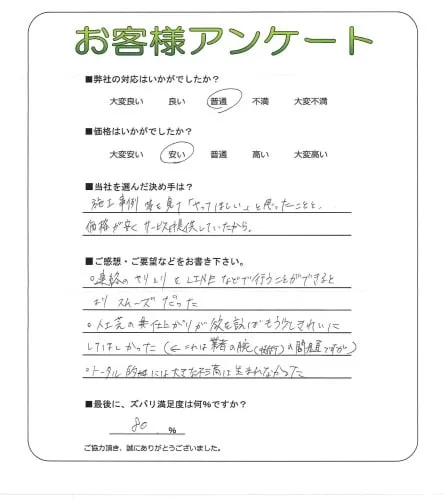 お客様アンケート
■弊社の対応はいかがでしたか?
大変良い 良い 普通 不満 大変不満
■価格はいかがでしたか?
大変安い 安い 普通 高い 大変高い
■当社を選んだ決め手は?
施工事例 を見て「やってほしい」と思ったことと、
価格が安くサービスを提供していたから。
■ご感想・ご要望などをお書き下さい。
○連絡のやりとりをLINEなどで行うことができると
よりスムーズだった
○人工芝の 仕上がりが欲を言えばもう少しきれいに
してほしかった(←これは業者の腕 の問題ですが)
○トータル的 には大きな は生まれなかった
■最後に、ズバリ満足度は何%ですか?
80 %
ご協力頂き、誠にありがとうございました。